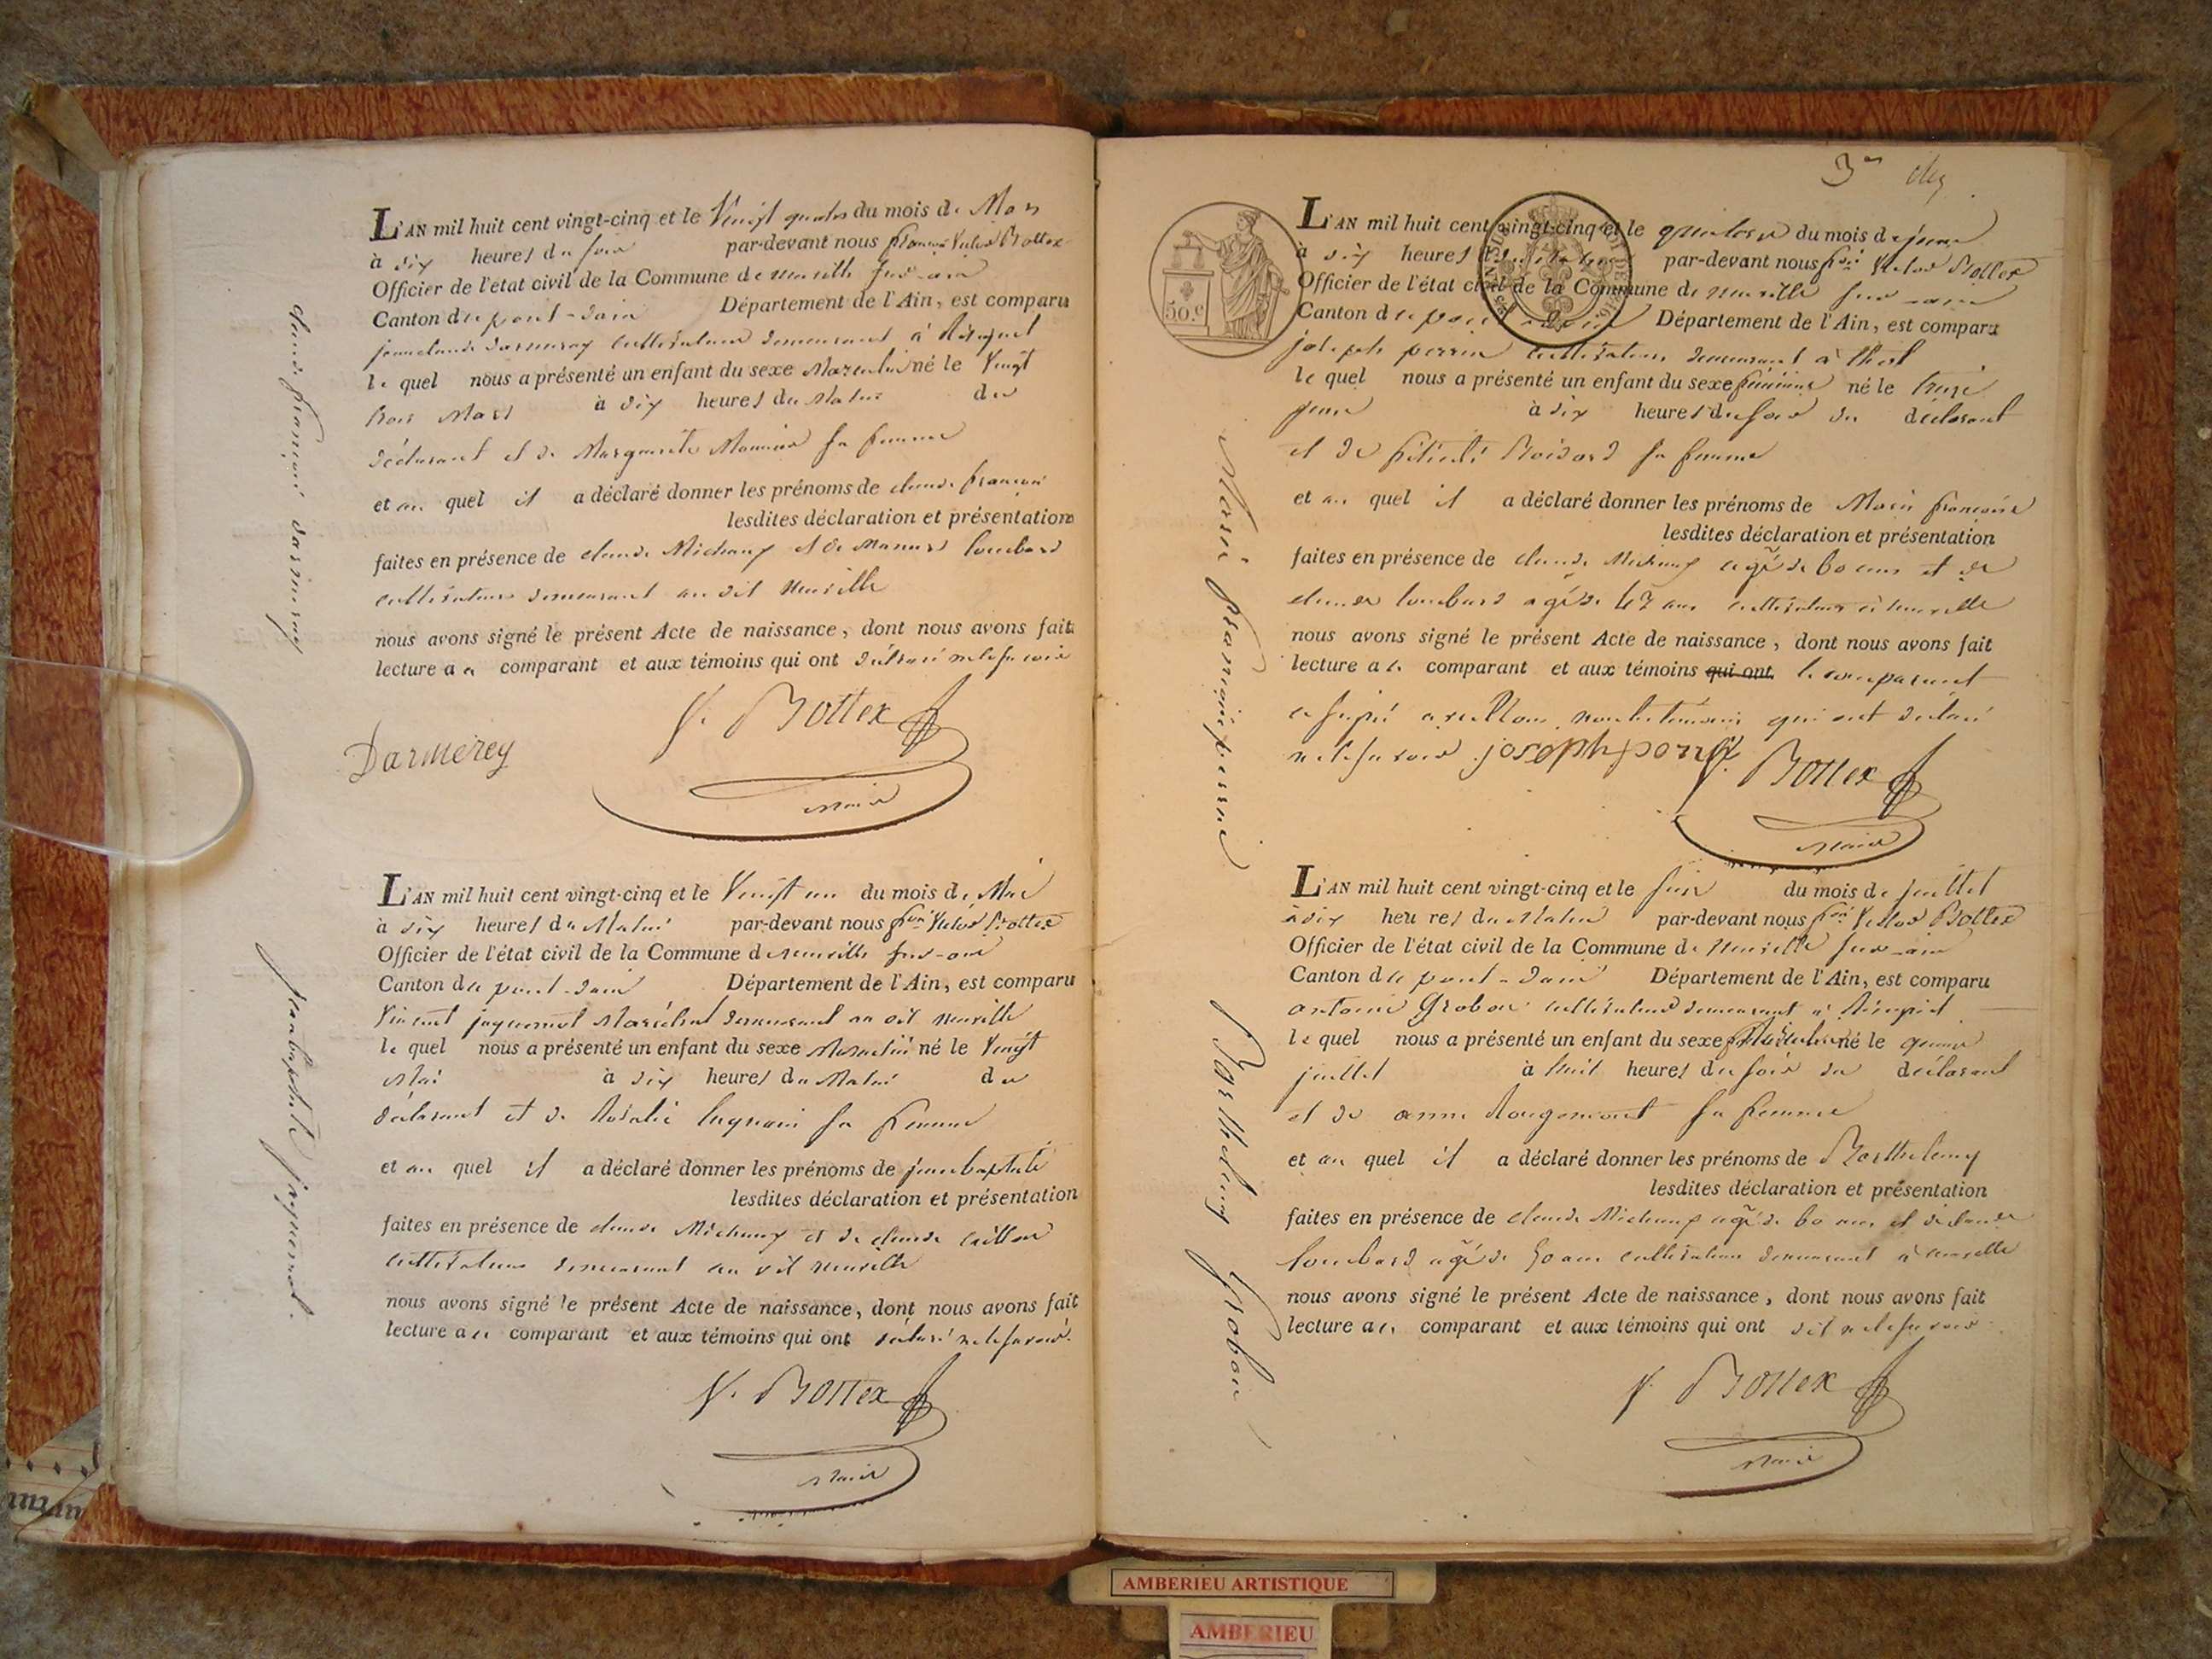 L'AN mil huit cent vingt-cinq et le Vingt quatre du mois de Mars
à six heures du soir par-devant nous françois Victor Bottex
Officier de l'état civil de la Commune de neuville sur-ain
Canton du pont-dain Département de l'Ain, est comparu
jean claude darmerey cultivateur demeurant à
le quel nous a présenté un enfant du sexe Masculin né le Vingt
trois Mars à six heures du Matin du
déclarant et de Marguerite Monnier sa femme
et au quel il a déclaré donner les prénoms de claude françois
lesdites déclaration et présentation
faites en présence de claude Michaux et de lombard
cultivateurs demeurant au dit Neuville
nous avons signé le présent Acte de naissance, dont nous avons fait
lecture au comparant et aux témoins qui ont déclaré ne le savoir
V. Bottex
Darmerey
Maire
claude françois darmerey
L'AN mil huit cent vingt-cinq et le Vingt un du mois de Mai
à six heures du Matin par-devant nous fran Victor Bottex
Officier de l'état civil de la Commune de neuville sur-ain
Canton du pont-dain Département de l'Ain, est comparu
Vincent jaquemet Maréchal demeurant au dit neuville
le quel nous a présenté un enfant du sexe Masculin né le Vingt
Mai à six heures du Matin du
déclarant et de Rosalie sa femme
et au quel il a déclaré donner les prénoms de jean baptiste
lesdites déclaration et présentation
faites en présence de claude Michaux et de claude
cultivateurs demeurant au dit neuville
nous avons signé le présent Acte de naissance, dont nous avons fait
lecture au comparant et aux témoins qui ont déclaré ne le savoir.
V. Bottex
Maire
jean baptiste jaquemet.
3me
50.c
L'AN mil huit cent vingt-cinq et le quinze du mois de juin
à six heures par-devant nous Victor Bottex
Officier de l'état civil de la Commune de neuville sur-ain
Canton du pont-dain Département de l'Ain, est comparu
joseph perrin cultivateur demeurant à thol
le quel nous a présenté un enfant du sexe féminin né le treize
juin à six heures du soir du déclarant
et de félicité Boisard sa femme
et au quel il a déclaré donner les prénoms de Marie françoise
lesdites déclaration et présentation
faites en présence de claude Michaux agé de 60 ans et de
claude lombard agé de 47 ans cultivateurs à neuville
nous avons signé le présent Acte de naissance, dont nous avons fait
lecture au comparant et aux témoins qui ont le comparant
a signé avec nous non les témoins qui ont déclaré
ne le savoir joseph perrin V. Bottex
Maire
Marie françoise perrin
L'AN mil huit cent vingt-cinq et le six du mois de juillet
à six heures du Matin par-devant nous fran Victor Bottex
Officier de l'état civil de la Commune de Neuville sur-ain
Canton du pont-dain Département de l'Ain, est comparu
antoine Grobon cultivateur demeurant à
le quel nous a présenté un enfant du sexe Masculin né le
juillet à huit heures du soir du déclarant
et de anne Rougemont sa femme
et au quel il a déclaré donner les prénoms de Barthelemy
lesdites déclaration et présentation
faites en présence de claude Michaux agé de 60 ans et de claude
lombard agé de 50 ans cultivateurs demeurant à neuville
nous avons signé le présent Acte de naissance, dont nous avons fait
lecture au comparant et aux témoins qui ont dit ne le savoir
V. Bottex
Maire
Barthelemy Grobon
AMBERIEU ARTISTIQUE
AMBERIEU